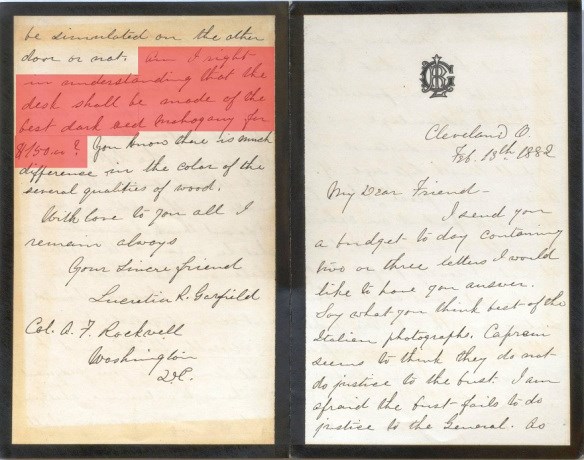 be simulated on the other
door or not. Am I right
in understanding that the
desk shall be made of the
best dark red mahogany for
$150.00? You know there is much
difference in the color of the
several qualities of wood.
With love to you all I
remain always
Your Sincere friend
Lucretia R. Garfield
Col. A. F. Rockwell
Washington
D.C.
Cleveland O.
Feb. 13th 1882
My Dear Friend-
I send you
a budget to day containing
two or three letters I would
like to have you answer.
Say what you think best of the
Italian photographs. Caproni
seems to think they do not
do justice to the bust. I am
afraid the bust fails to do
justice to the General. As